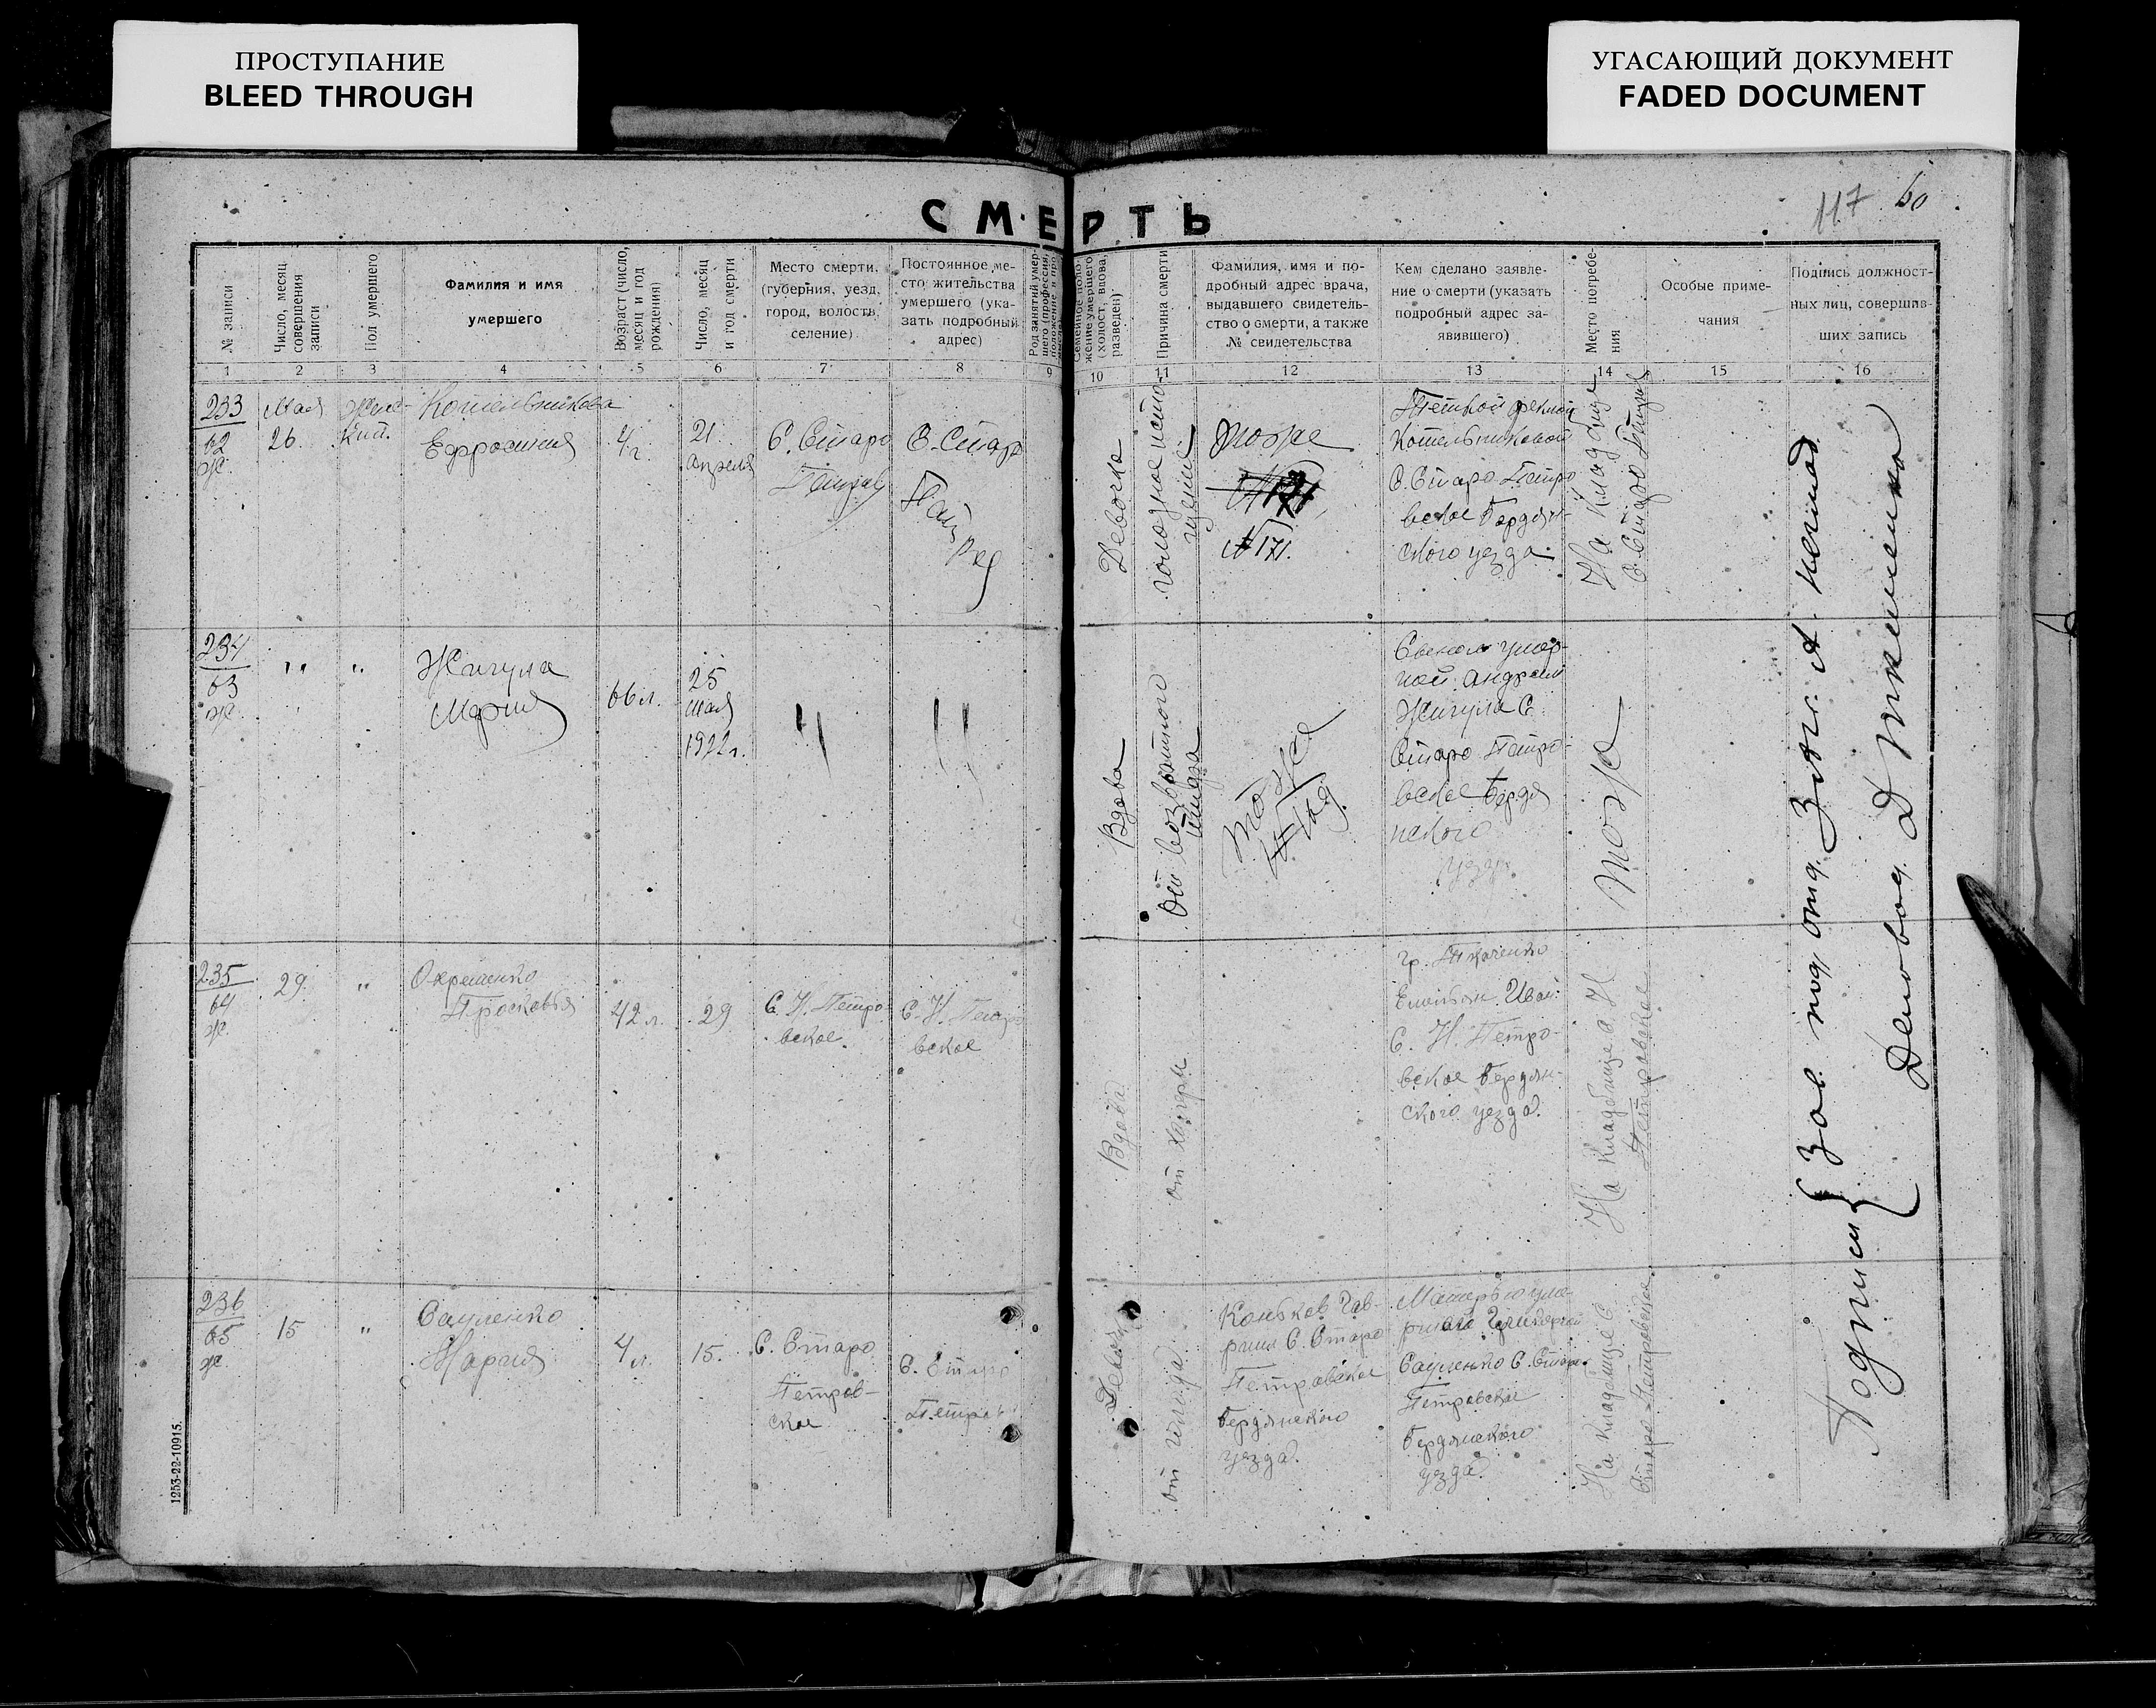 ПРОСТУПАНИЕ
BLEED THROUGH
УГАСАЮЩИЙ ДОКУМЕНТ
FADED DOCUMENT
117 60
СМЕРТЬ
№ записи
Число, месяц
совершения
записи
Пол умершего
Фамилия и имя
умершего
Возраст (число,
месяц и год
рождения)
Число, месяц
и год смерти
Место смерти,
(губерния, уезд,
город, волость,
селение)
Постоянное ме-
сто жительства
умершего (ука-
зать подробный
адрес)
Род занятий умер-
шего (профессия,
положение в про
Семейное поло
жение умершего
(холост, вдова,
разведен)
Причина смерти
Фамилия, имя и по-
дробный адрес врача,
выдавшего свидетель-
ство о смерти, а также
№ свидетельства
Кем сделано заявле-
ние о смерти (указать
подробный адрес за-
явившего)
Место погребе-
ния
Особые приме-
чания
Подпись должност-
ных лиц, совершив-
ших запись
1 2 3 4 5 6 7 8 9 10 11 12 13 14 15 16
233
62
ж.
Мая
26
Женс-
кий.
Котельникова
Ефросиния
4 г.
21
апреля
С. Старо
Петров
С. Старо
Девочка
голодное исто-
щение
тоже
N 171.
Теткой
Котельниковой
С. Старо Петро
вское Бердян-
ского уезда.
На кладбище
С. Старо Петров
234
63
ж.
" "
"
Жигула
Мария
66 л.
25
мая
1922 г.
"
"
Вдова
От возвратного
тифа
тоже
Сыном умер-
шей Андреем
Жигула С.
Старо Петро-
вское Бердя
нского
уезда
тоже
235
64
ж.
29.
"
Охрименко
Просковья
42 л.
29
С. Н. Петро-
вское.
С. Н. Петро
вское
Вдова
гр. Ткаченко
Емельян Иван.
С. Н. Петро-
вское Бердян-
ского уезда.
На кладбище с. Н.
Петровское
236
65
ж.
15
"
Сауленко
Мария
4 л.
15.
С. Старо
Петров-
ское
С. Старо
Петров
Девочка
от голода
Коньков Гав-
риил С. Старо
Петровское
Бердянского
уезда.
Матерью уме-
ршей
Сауленко С. Старо
Петровское
Бердянского
уезда.
На кладбище С.
Старо-Петровское
Подписи { Зав. под. отд. Загс. А.
Деловод. Д Ткаченко
1253-22-10915.